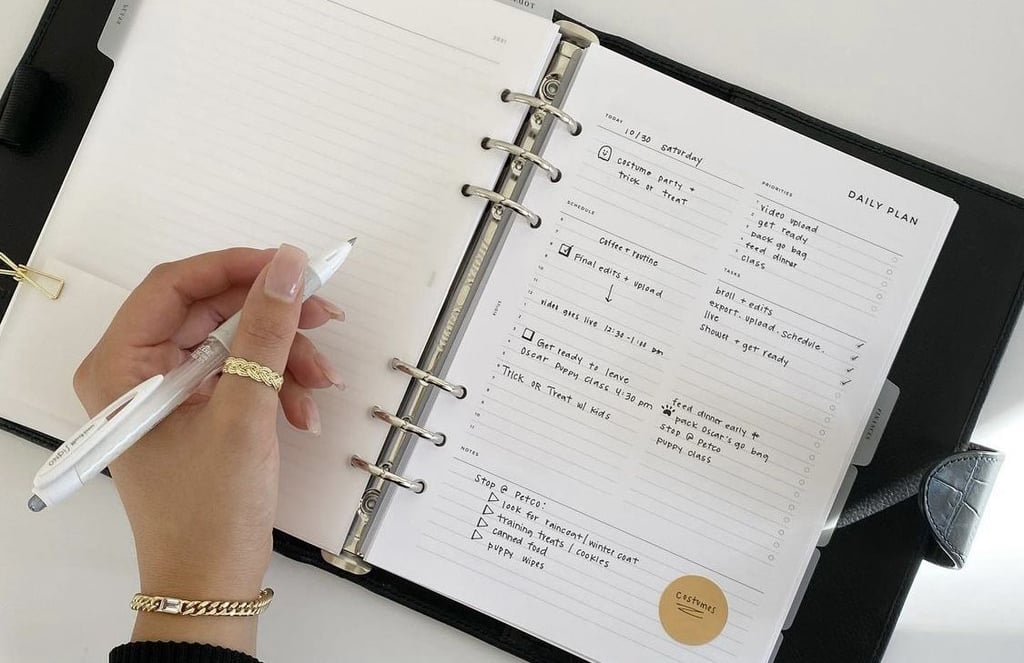 2021
TODAY
10/30 Saturday
costume party +
trick or treat
SCHEDULE
Coffee + routine
Final edits + upload
video goes live 12:30-1:00 pm
Get ready to leave
Oscar Puppy Class 4:30 pm
Trick OR Treat w/ kids
NOTES
Stop @ PETCO:
look for raincoat/winter coat
training treats / cookies
canned food
puppy wipes
DAILY PLAN
PRIORITIES
video upload
get ready
pack go bag
feed dinner
class
TASKS
broll + edits
export. upload. schedule.
live
shower + get ready
feed dinner early +
pack Oscar's go bag
stop @ Petco
puppy class
Costumes